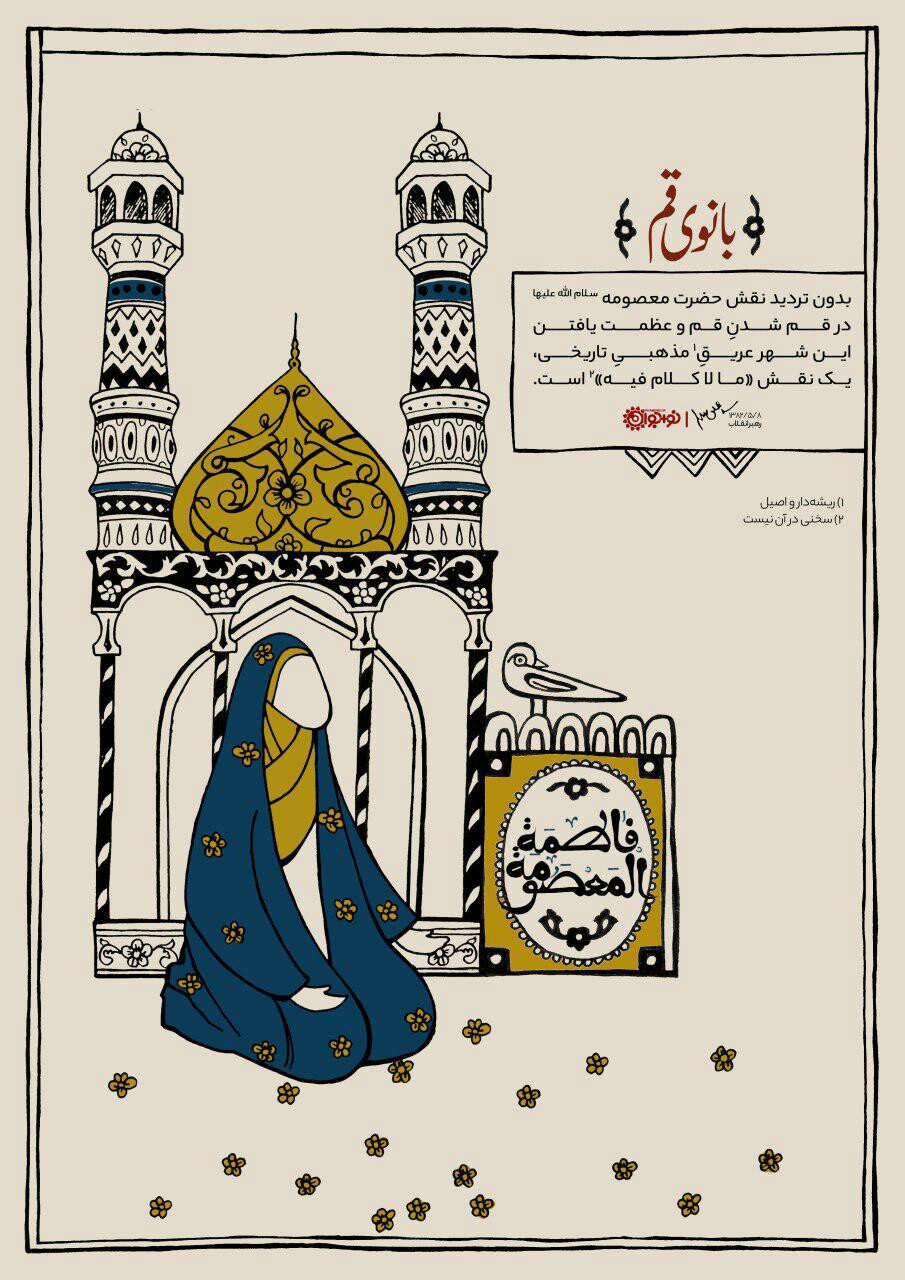 بانوی قم
بدون تردید نقش حضرت معصومه سلام الله علیها
در قـم شـدنِ قم و عظمـت یافتـن
ایـن شـهر عریـقِ۱ مذهبـیِ تاریخـی،
یـک نقـش «مـا لا کـلام فیـه»۲ اسـت.
۱۳۸۲/۵/۸
رهبر انقلاب
نوجوان
۱) ریشه‌دار و اصیل
۲) سخنی در آن نیست
فاطمة
المعصومة